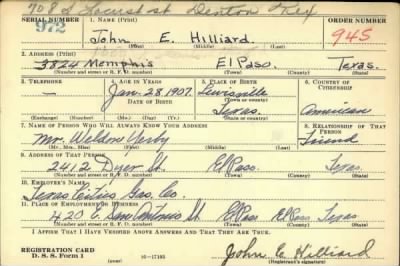 708 S Locust St Denton Tex
SERIAL NUMBER 1. NAME (Print) ORDER NUMBER
972 John E. Hilliard. 945
(First) (Middle) (Last)
2. ADDRESS (Print)
3824 Memphis El Paso Texas.
(Number and street or R. F. D. number) (Town) (County) (State)
3. TELEPHONE 4. AGE IN YEARS 5. PLACE OF BIRTH 6. COUNTRY OF CITIZENSHIP
— Jan. 28, 1907. Lewisville
DATE OF BIRTH (Town or county)
Texas. American
(Exchange) (Number) (Mo.) (Day) (Yr.) (State or country)
7. NAME OF PERSON WHO WILL ALWAYS KNOW YOUR ADDRESS 8. RELATIONSHIP OF THAT PERSON
Mr. Weldon Yerby Friend
(Mr., Mrs., Miss) (First) (Middle) (Last)
9. ADDRESS OF THAT PERSON
2412 Dyer St. El Paso. Texas
(Number and street or R. F. D. number) (Town) (County) (State)
10. EMPLOYER'S NAME
Texas Cities Gas. Co.
11. PLACE OF EMPLOYMENT OR BUSINESS
420 E. San Antonio St El Paso El Paso Texas
(Number and street or R. F. D. number) (Town) (County) (State)
I AFFIRM THAT I HAVE VERIFIED ABOVE ANSWERS AND THAT THEY ARE TRUE.
REGISTRATION CARD
D. S. S. Form 1 16—17105 John E Hilliard
(Registrant's signature)